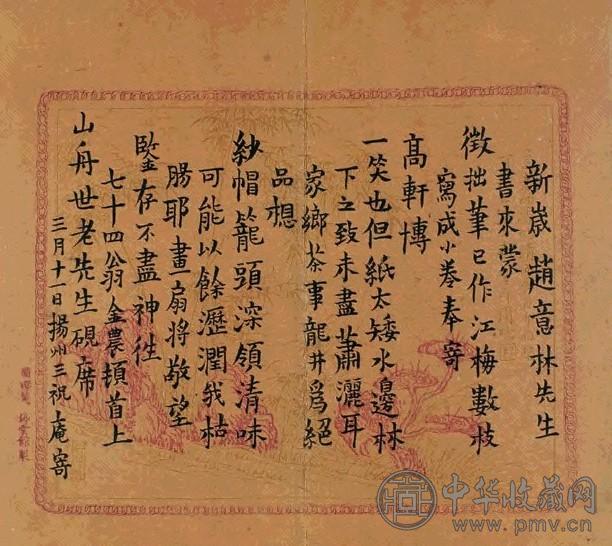 新歲趙意林先生
書來蒙
徵拙筆已作江梅數枝
寫成小卷奉寄
高軒博
一笑也但紙太矮水邊林
下之致未盡蕭灑耳
家鄉茶事龍井爲絕
品想
紗帽籠頭深領清味
可能以餘瀝潤我枯
腸耶畫扇將敬望
鑒存不盡神往
七十四翁金農頓首上
山舟世老先生硯席
三月十一日揚州三祝庵寄
中华收藏网
www.pmv.cn